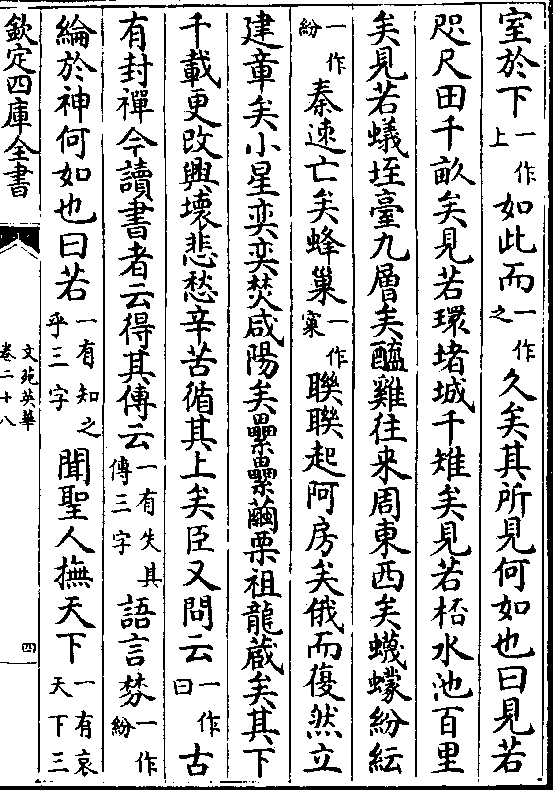 室於下一作上如此而一作之久矣其所見何如也曰見若
咫尺田千畝矣見若環堵城千雉矣見若桮水池百里
矣見若蟻垤臺九層矣醯雞往来周東西矣蠛蠓紛紜
一作紛秦速亡矣蜂巢一作窠聨聨起阿房矣俄而復然立
建章矣小星奕奕焚咸陽矣纍纍繭栗祖龍蔵矣其下
千載更改興壊悲愁辛苦循其上矣臣又問云一作曰古
有封禪今讀書者云得其傳云一有失其傳三字語言棼一作紛
綸於神何如也曰若一有知之乎三字聞聖人撫天下一有哀天下三
欽定四庫全書
文苑英華
卷二十八
四